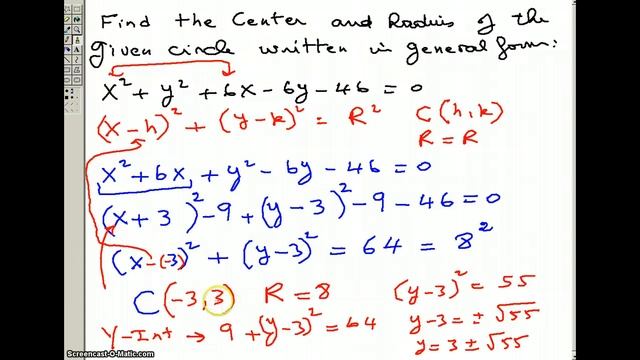 Find the Center and Radius of the
given circle written in general form:
x² + y² + 6x - 6y - 46 = 0
(x - h)² + (y - k)² = R² C(h, k)
R = R
x² + 6x + y² - 6y - 46 = 0
(x + 3)² - 9 + (y - 3)² - 9 - 46 = 0
(x - (-3))² + (y - 3)² = 64 = 8²
C(-3, 3) R = 8
Y-Int → 9 + (y - 3)² = 64
(y - 3)² = 55
y - 3 = ± √55
y = 3 ± √55
Screencast-O-Matic.com